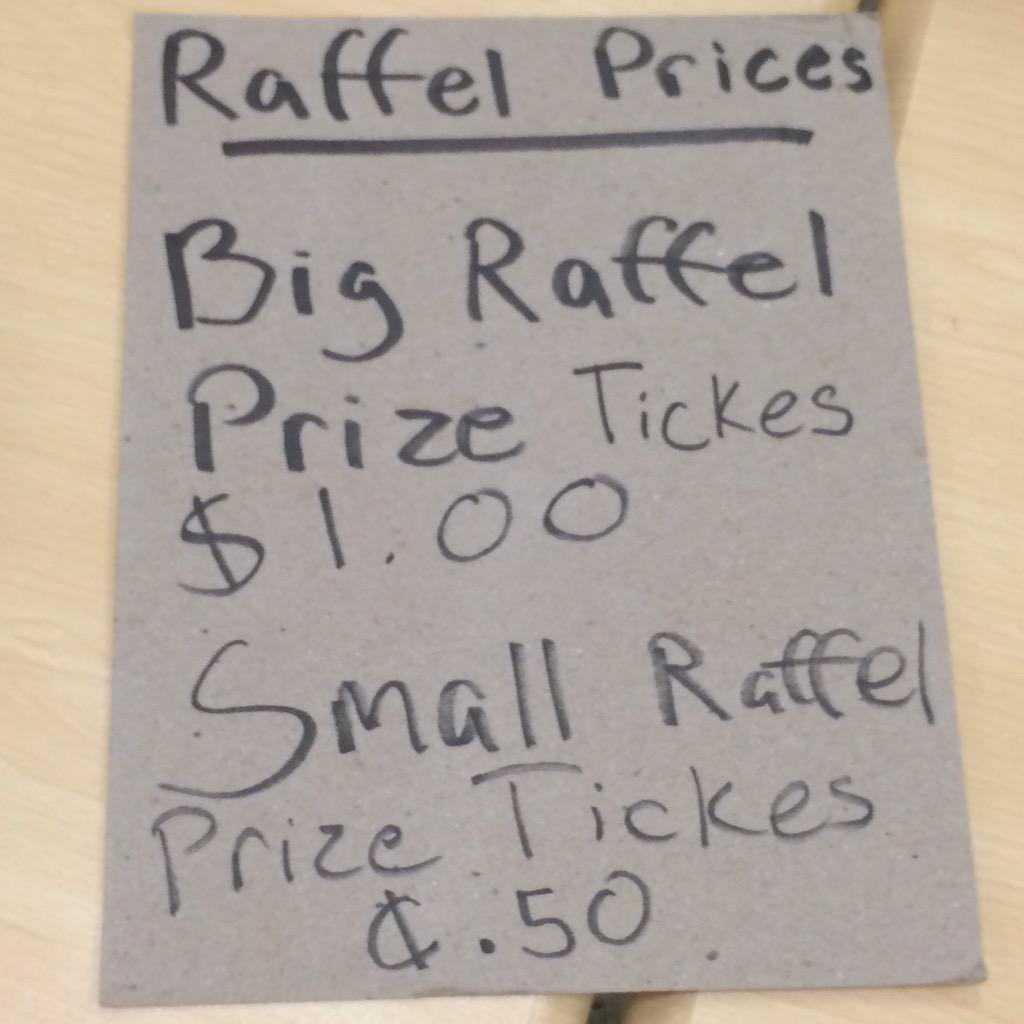 Raffel Prices
Big Raffel
Prize Tickes
$1.00
Small Raffel
Prize Tickes
¢.50